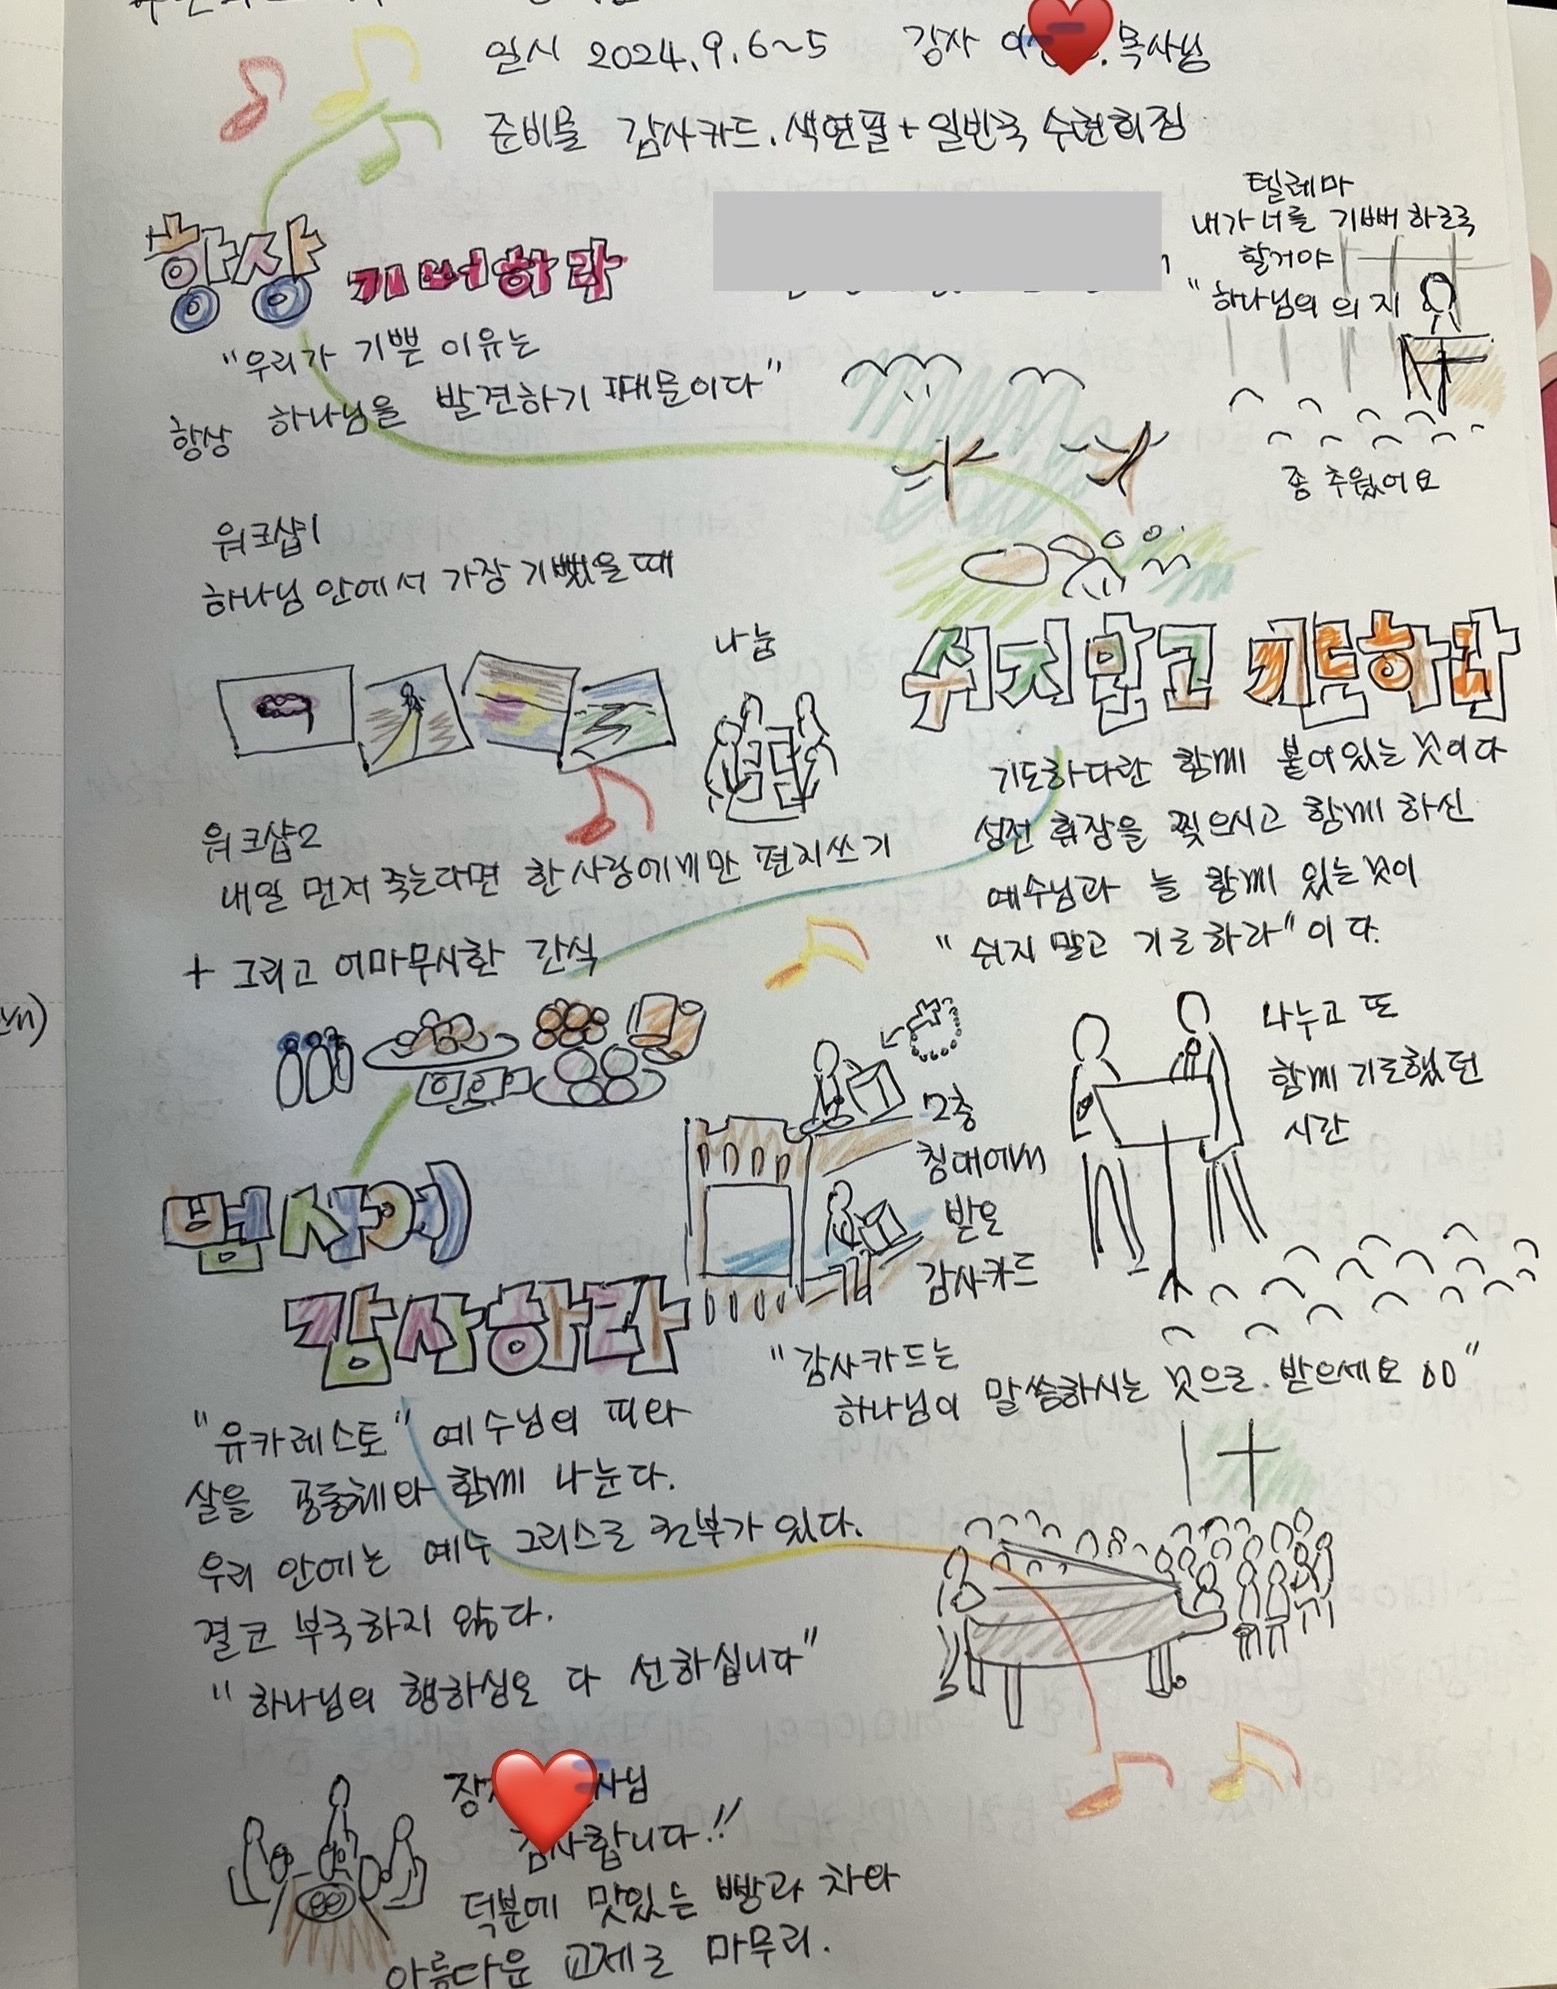 일시 2024.9.6~5 강사 이 목사님
준비물 감사카드. 색연필 + 일반국 수련회짐
항상 기뻐하라
"우리가 기쁜 이유는
항상 하나님을 발견하기 때문이다"
텔레마
내가 너를 기뻐하도록
할거야
"하나님의 의지
좀 추웠어요
워크샵1
하나님 안에서 가장 기뻤을때
나눔
워크샵2
내일 먼저 죽는다면 한사람에게만 편지쓰기
+ 그리고 어마무시한 간식
쉬지 말고 기도하라
기도하다란 함께 붙어있는 것이다
성전 휘장을 찢으시고 함께 하신
예수님과 늘 함께 있는것이
"쉬지 말고 기도하라"이다.
나누고 또
함께 기도했던
시간
2층
침대에서
받은
감사카드
"감사카드는
하나님이 말씀하시는 것으로. 받으세요 00"
범사에
감사하라
"유카레스토" 예수님의 피와
살을 공동체와 함께 나눈다.
우리 안에는 예수 그리스도 전부가 있다.
결코 부족하지 않다.
"하나님의 행하심은 다 선하십니다"
장 사님
감사합니다!!
덕분에 맛있는 빵과 차와
아름다운 교제로 마무리.